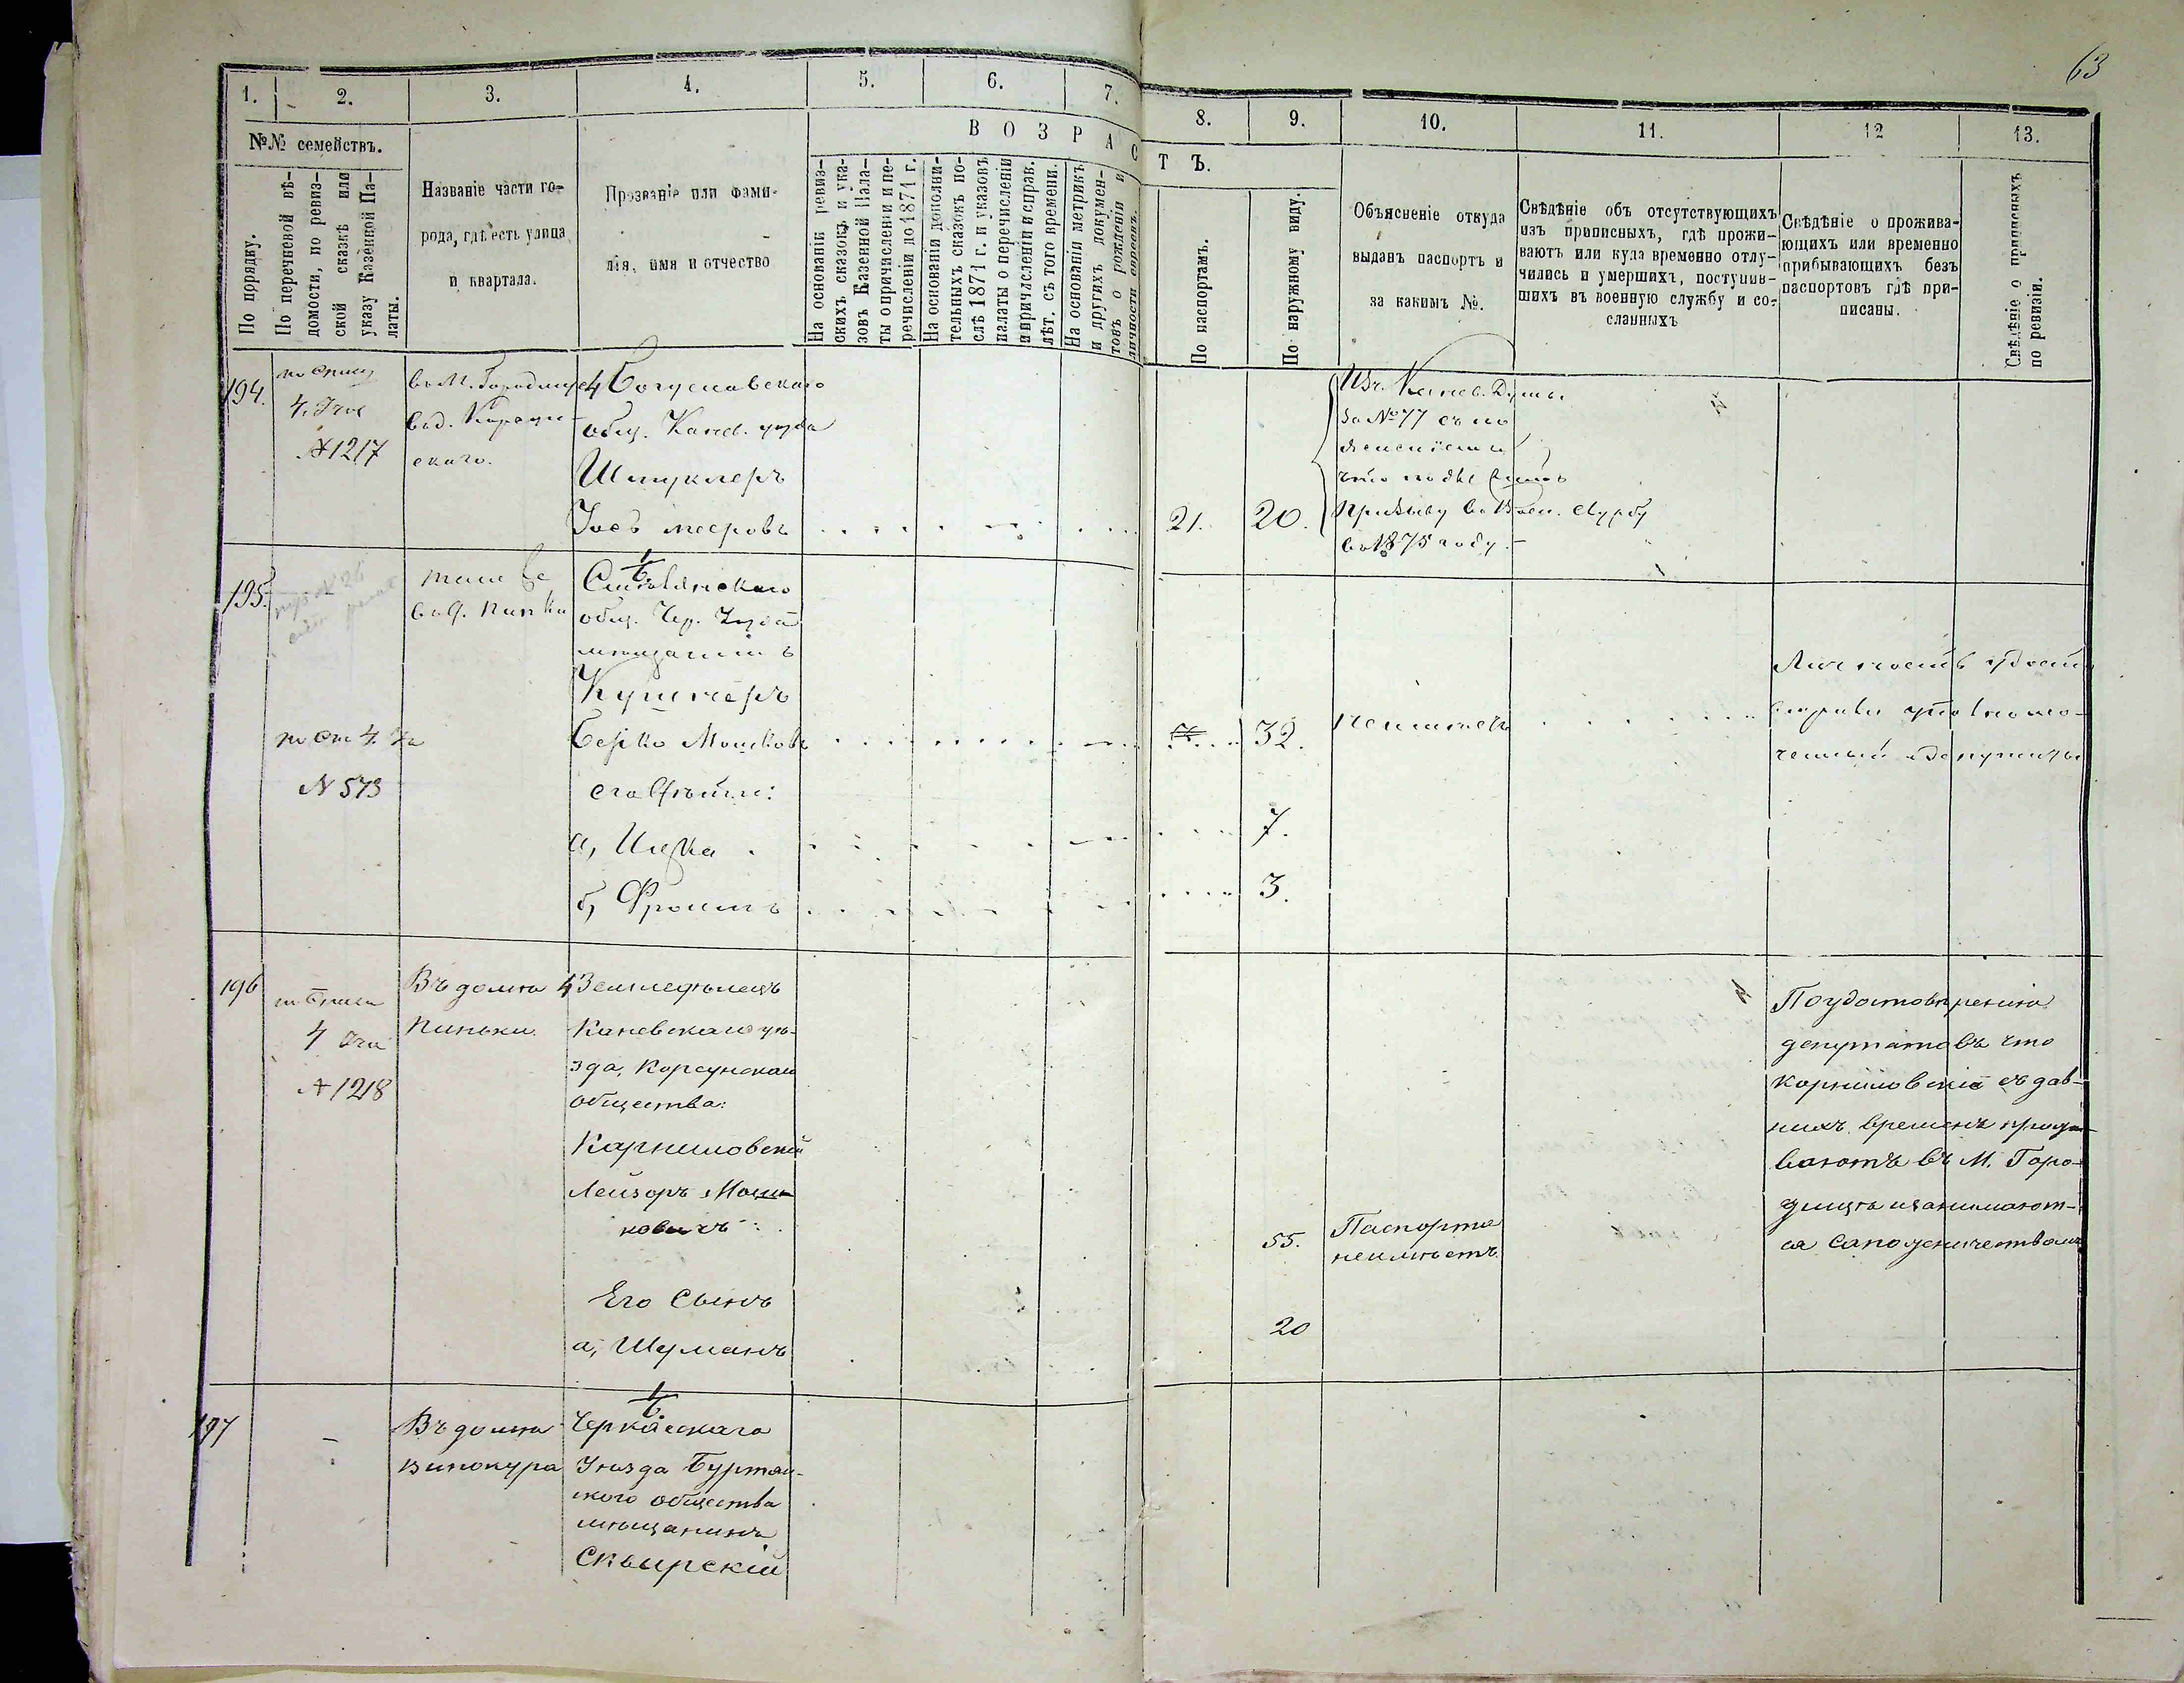 63
1. 2. 3. 4. 5. 6. 7. 8. 9. 10. 11. 12 13.
№№ семействъ.
По порядку.
По перечневой вѣ-
домости, по ревиз-
ской сказкѣ или
указу Казенной Па-
латы.
Названіе части го-
рода, гдѣ есть улица
и квартала.
Прозваніе или фами-
лія, имя и отчество
ВОЗРАСТЪ.
На основаніи ревиз-
скихъ сказокъ и ука-
зовъ Казенной Пала-
ты о причисленіи и пе-
речисленіи до 1871 г.
На основаніи дополни-
тельныхъ сказокъ по-
слѣ 1871 г. и указовъ
палаты о перечисленіи
и причисленіи и справ.
лѣт. съ того времени.
На основаніи метрикъ
и другихъ докумен-
товъ о рожденіи и
личности евреевъ.
По паспортамъ.
По наружному виду.
Объясненіе откуда
выданъ паспортъ и
за какимъ №.
Свѣдѣніе объ отсутствующихъ
изъ приписныхъ, гдѣ прожи-
ваютъ или куда временно отлу-
чились и умершихъ, поступив-
шихъ въ военную службу и со-
сланныхъ
Свѣдѣніе о прожива-
ющихъ или временно
прибывающихъ безъ
паспортовъ гдѣ при-
писаны.
Свѣдѣніе о приписныхъ
по ревизіи.
194.
по списку
№ 1217
въ М. Городище
4 Богуславскаго
общ. Канев. уѣзда
Штуклеръ
Іосъ Мееровъ
21. 20.
Из. Канев. Думы
за № 77 съ по
что
призыву въ Воен. службу
въ 1875 году.
195.
тамъ же
въ д. Пинки
общ. Чер. Уѣзда
мѣщанинъ
Кушнеръ
Берко Мошковъ
по сп. 4.
N 573
32.
Личность удосто
уполномо-
ченный и Депутаты
его дѣти:
а,
7.
б, Фроимъ
3.
196
по списку
4
№ 1218
Въ домѣ
Пиньки.
4 Земледѣлецъ
Каневскаго уѣ-
зда, Корсунскаго
общества:
Карниловскій
Лейзоръ Мош-
ковичъ
55.
Паспорта
неимѣетъ
По удостовѣренію
депутатовъ что
Корниловскіе съ дав-
нихъ временъ прожи-
ваютъ въ М. Горо-
дищѣ и занимают-
ся сапожничествомъ
Его сынъ
а, Шуманъ
20
197
Въ домѣ
Винокура
Черкаскаго
Уѣзда Буртян-
ского общества
мѣщанинъ
Сквирскій